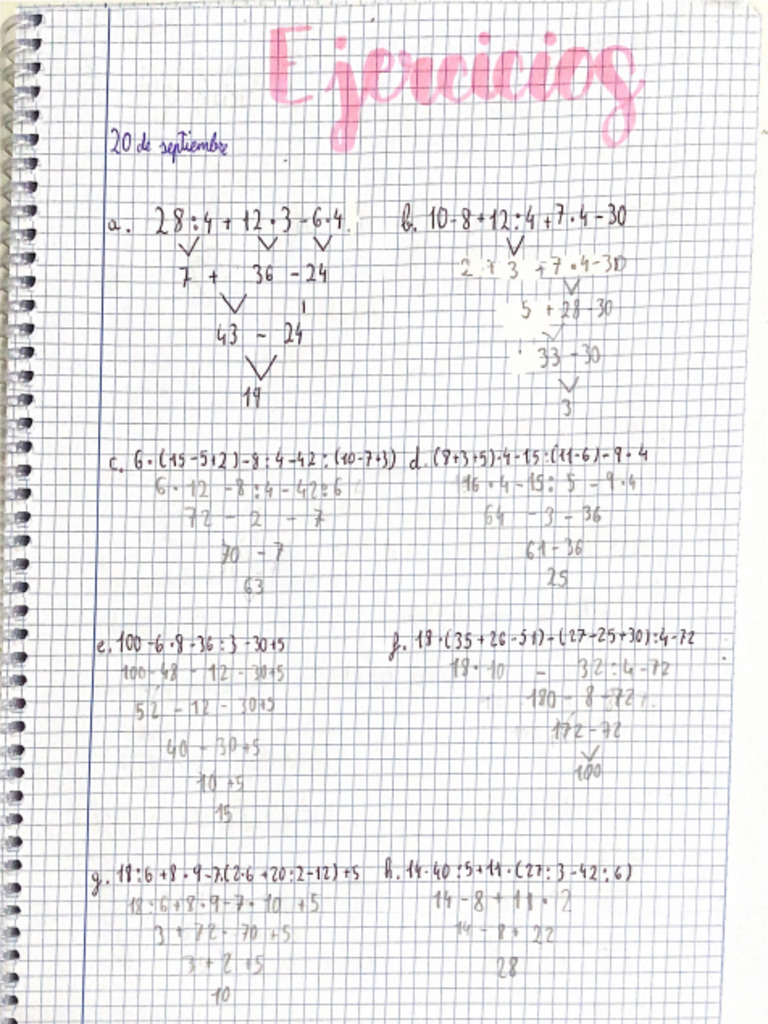 Ejercicios
20 de septiembre
a. 28:4 + 12·3 - 6·4
7 + 36 - 24
43 - 24
19
b. 10-8+12:4+7·4-30
2 + 3 + 7·4-30
5 + 28-30
33 - 30
3
c. 6·(15-5+2)-8:4-42:(10-7+3)
6·12 -8:4-42:6
72 - 2 - 7
70 - 7
63
d. (8+3+5)·4-15:(11-6)-9·4
16·4-15:5-9·4
64 - 3 - 36
61-36
25
e. 100-6·8-36:3-30+5
100-48 - 12 - 30+5
52 - 12 - 30+5
40 - 30+5
10 +5
15
f. 18·(35+26-51)-(27-25+30):4-72
18·10 - 32:4-72
180 - 8 -72
172-72
100
g. 18:6+8·9-7·(2·6+20:2-12)+5
18:6+8·9-7·10 +5
3 + 72- 70 +5
3 + 2 +5
10
h. 14-40:5+11·(27:3-42:6)
14-8 + 11·2
14 - 8+ 22
28